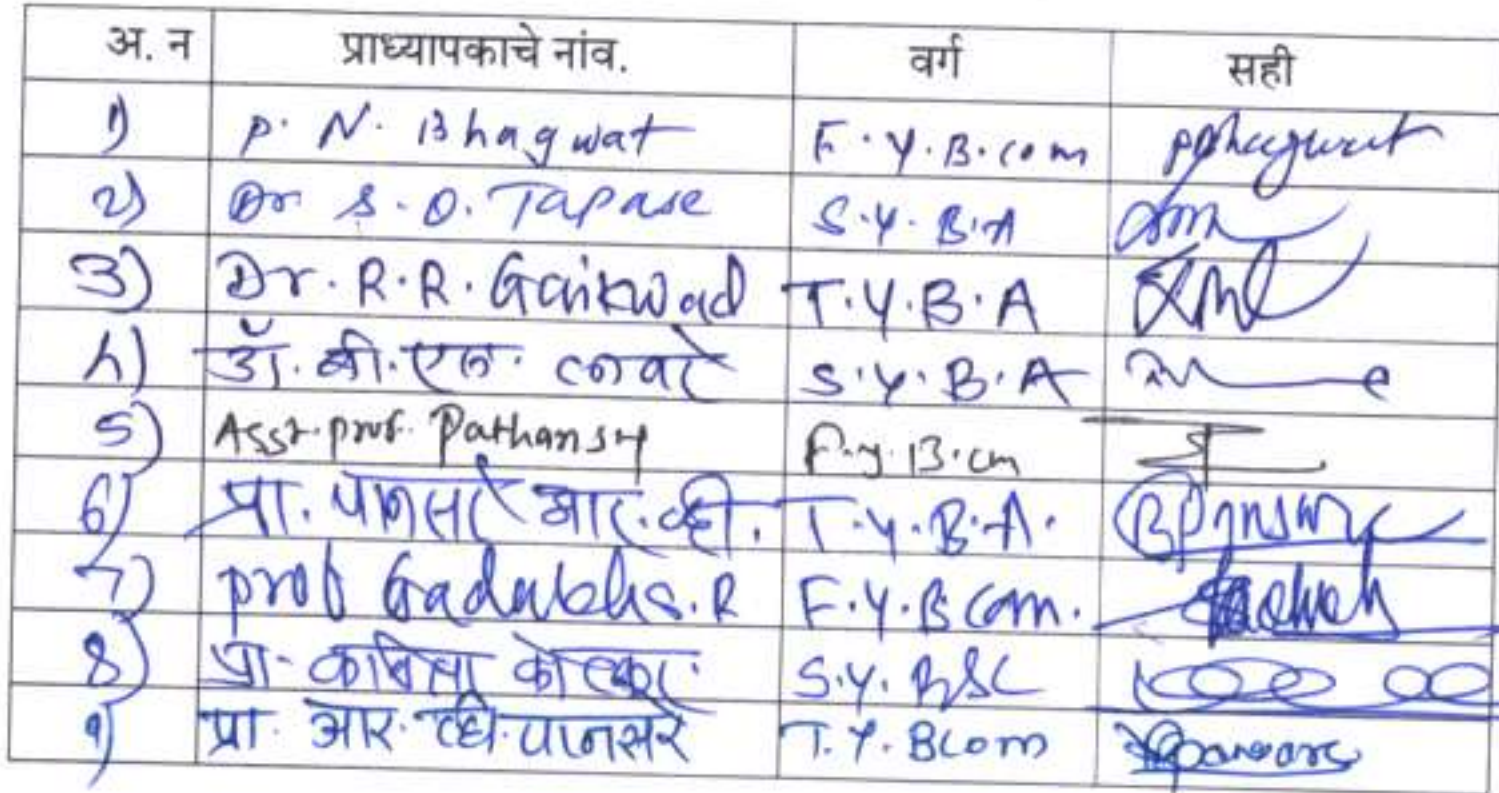 अ. न प्राध्यापकाचे नांव. वर्ग सही
1) P. N. Bhagwat F.Y.B.com pbhagwat
2) Dr S. D. Tapase S.Y.B.A
3) Dr. R. R. Gaikwad T.Y.B.A
4) डॉ. बी. एल. S.Y.B.A
5) Asst. prof. Pathan F.y.B.cm
6) प्रा. पानसरे आर. व्ही. T.Y.B.A.
7) prof S.R F.Y.B com.
8) प्रा. कविता S.Y. BSC
9) प्रा. आर. व्ही. पानसरे T.Y. Bcom